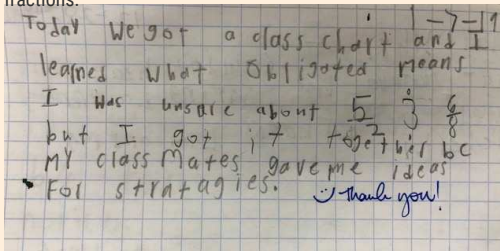 fractions.
1-7-19
Today we got a class chart and I
learned what Obligated means
I was unsure about 5/2 3 6/8
but I got it together bc
MY classMates gave me ideas
For stratagies. Thank you!